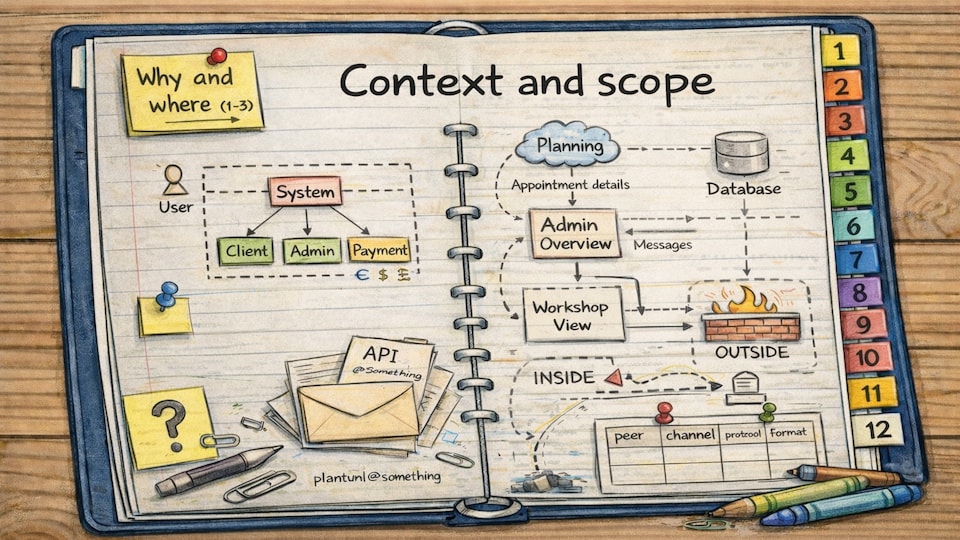 Why and
where (1-3)
Context and scope
User
System
Client
Admin
Payment
€ $ £
API
@Something
?
plantunl@something
Planning
Appointment details
Database
Admin
Overview
Messages
Workshop
View
OUTSIDE
INSIDE
peer channel protzool format
1
2
3
4
5
6
7
8
9
10
11
12